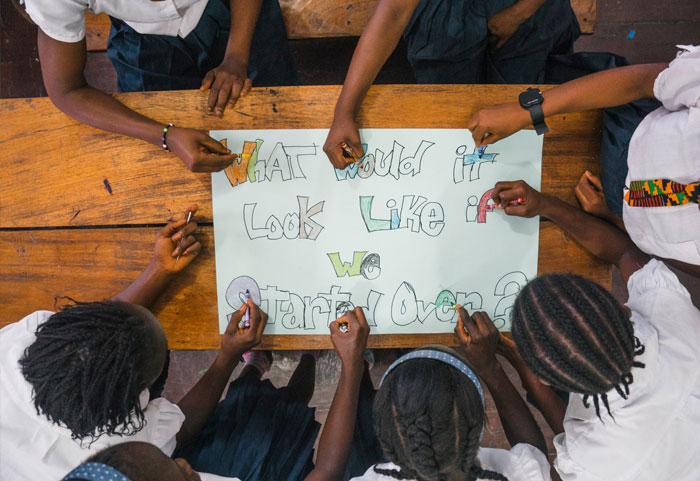 WHAT Would it
Look Like if
we
Started Over?